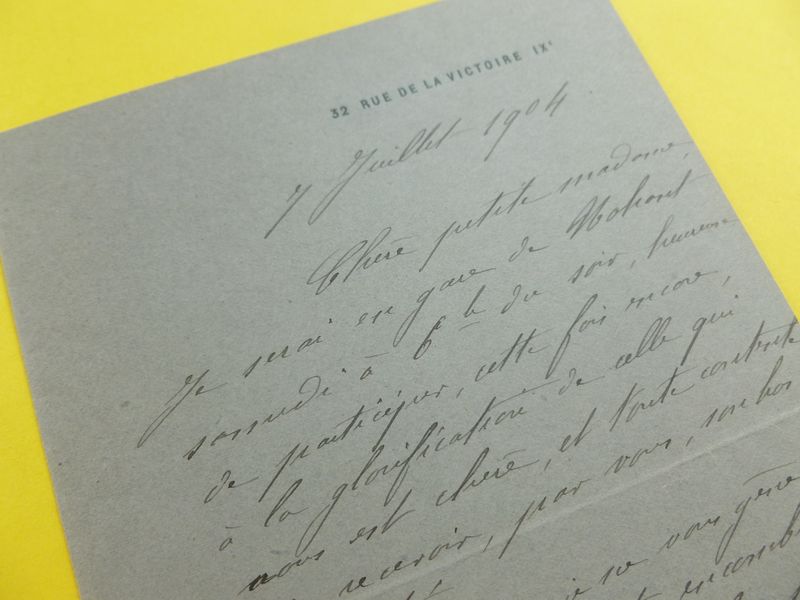 32 RUE DE LA VICTOIRE IXᵉ
7 Juillet 1904
Chère petite madame,
Je serai en gare de Nohant
samedi à 6 h du soir, heureuse
de participer, cette fois encore,
à la glorification de celle qui
nous est chère, et toute contente
de recevoir, par vous, son hos
je ne vous gêne